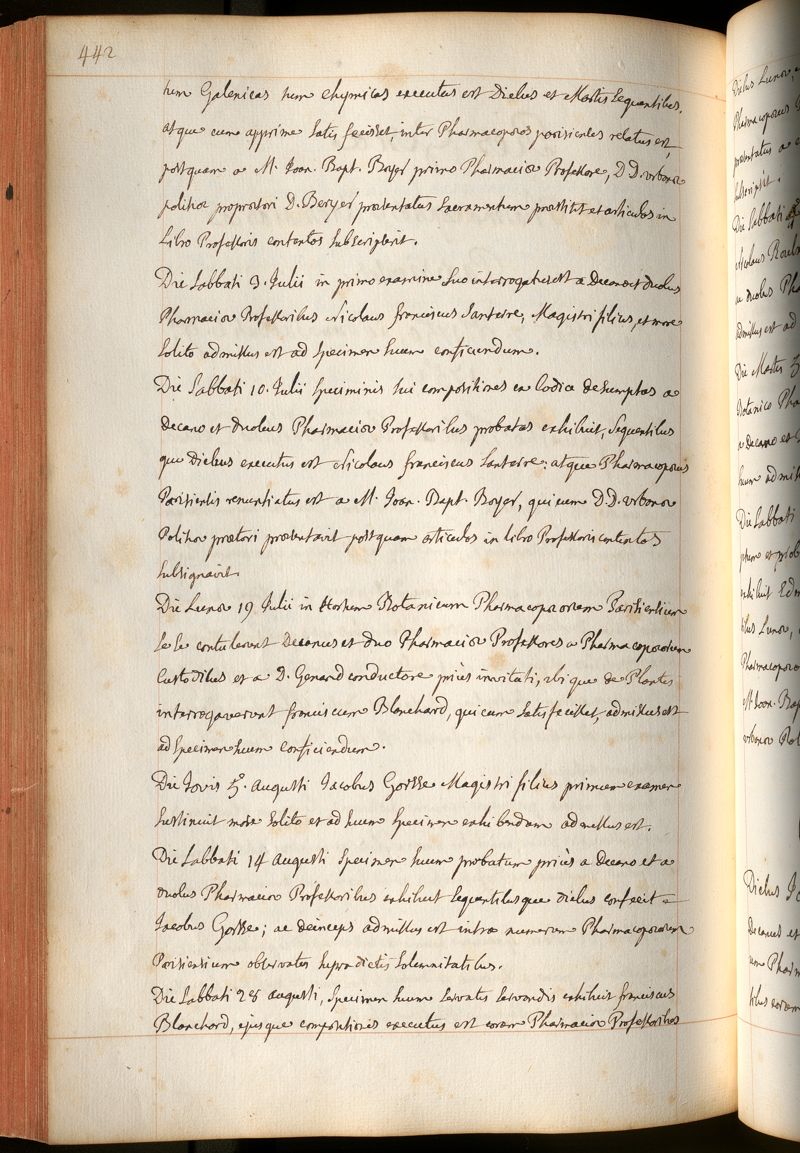 442
tum Galenicas tum chymicas executus est Diebus et Martis sequentibus,
atque cum apprime satis fecisset, inter Pharmacopoeos parisienses relatus est,
postquam a M. Joan. Bapt. Boyer primo Pharmaciæ Professore, D D. urbanæ
politiæ proprætori D. Beryer præsentatus Sacramentum præstitit et articulos in
Libro Professoris contentos subscripserit.
Die Sabbati 3. Julii in primo examine suo interrogatus est a Decano et duobus
Pharmaciæ Professoribus Nicolaus franciscus Santerre, Magistri filius, et more
solito admissus est ad specimen suum conficiendum.
Die Sabbati 10. Julii speciminis sui compositiones ex Codice desumptas a
decano et duobus Pharmaciæ Professoribus probatas exhibuit, sequentibus
que Diebus executus est Nicolaus franciscus Santerre; atque Pharmacopoeus
Parisiensis renuntiatus est a M. Joan. Bapt. Boyer, qui eum D.D. urbanæ
Politiæ prætori præsentavit postquam articulos in libro Professoris contentos
subsignavit.
Die Lunæ 19 Julii in Hortum Botanicum Pharmacopoeorum Parisiensium
se se contulerunt Decanus et duo Pharmaciæ Professores a Pharmacopoeorum
Custodibus et a D. Genard conductore priùs invitati, ibi que de Plantis
interrogaverunt franciscum Blanchard, qui cum satisfecisset, admissus est
ad specimen suum conficiendum.
Die Jovis 5. augusti Jacobus Gorsse Magistri filius primum examen
sustinuit more solito et ad suum specimen exhibendum admissus est.
Die Sabbati 14 augusti specimen suum probatum priùs a Decano et a
duobus Pharmaciæ Professoribus exhibuit sequentibusque diebus confecit
Jacobus Gorsse; ac deinceps admissus est intra numerum Pharmacopoeorum
Parisiensium observatis supradictis solemnitatibus.
Die Sabbati 28 augusti, specimen suum servatis servandis exhibuit franciscus
Blanchard, ejusque compositiones executus est coram Pharmaciæ Professoribus